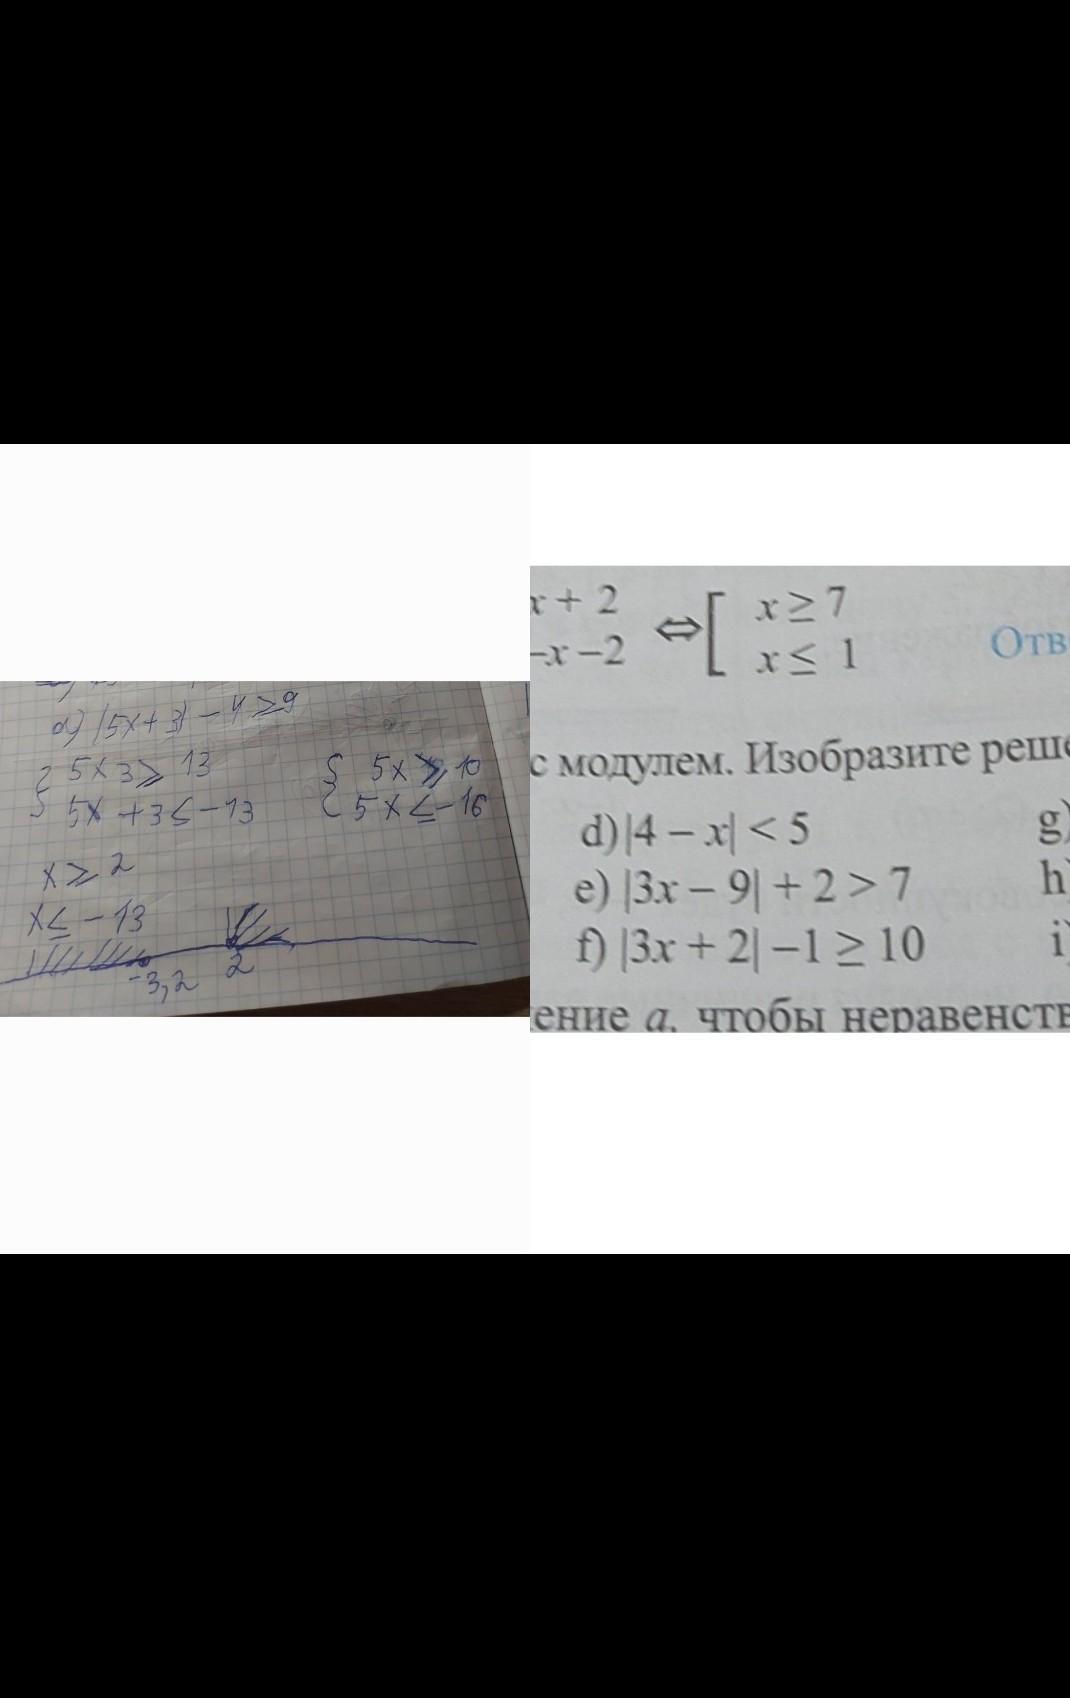 d) |5x+3| - 4 ≥ 9
5x 3 ≥ 13
5x + 3 ≤ -13
5x ≥ 10
5x ≤ -16
x ≥ 2
x ≤ -13
-3,2
2
x + 2
-x -2
⇔ [ x ≥ 7
x ≤ 1
Отв
с модулем. Изобразите реше
d) |4 - x| < 5
g)
e) |3x - 9| + 2 > 7
h)
f) |3x + 2| -1 ≥ 10
i)
ение a, чтобы неравенств